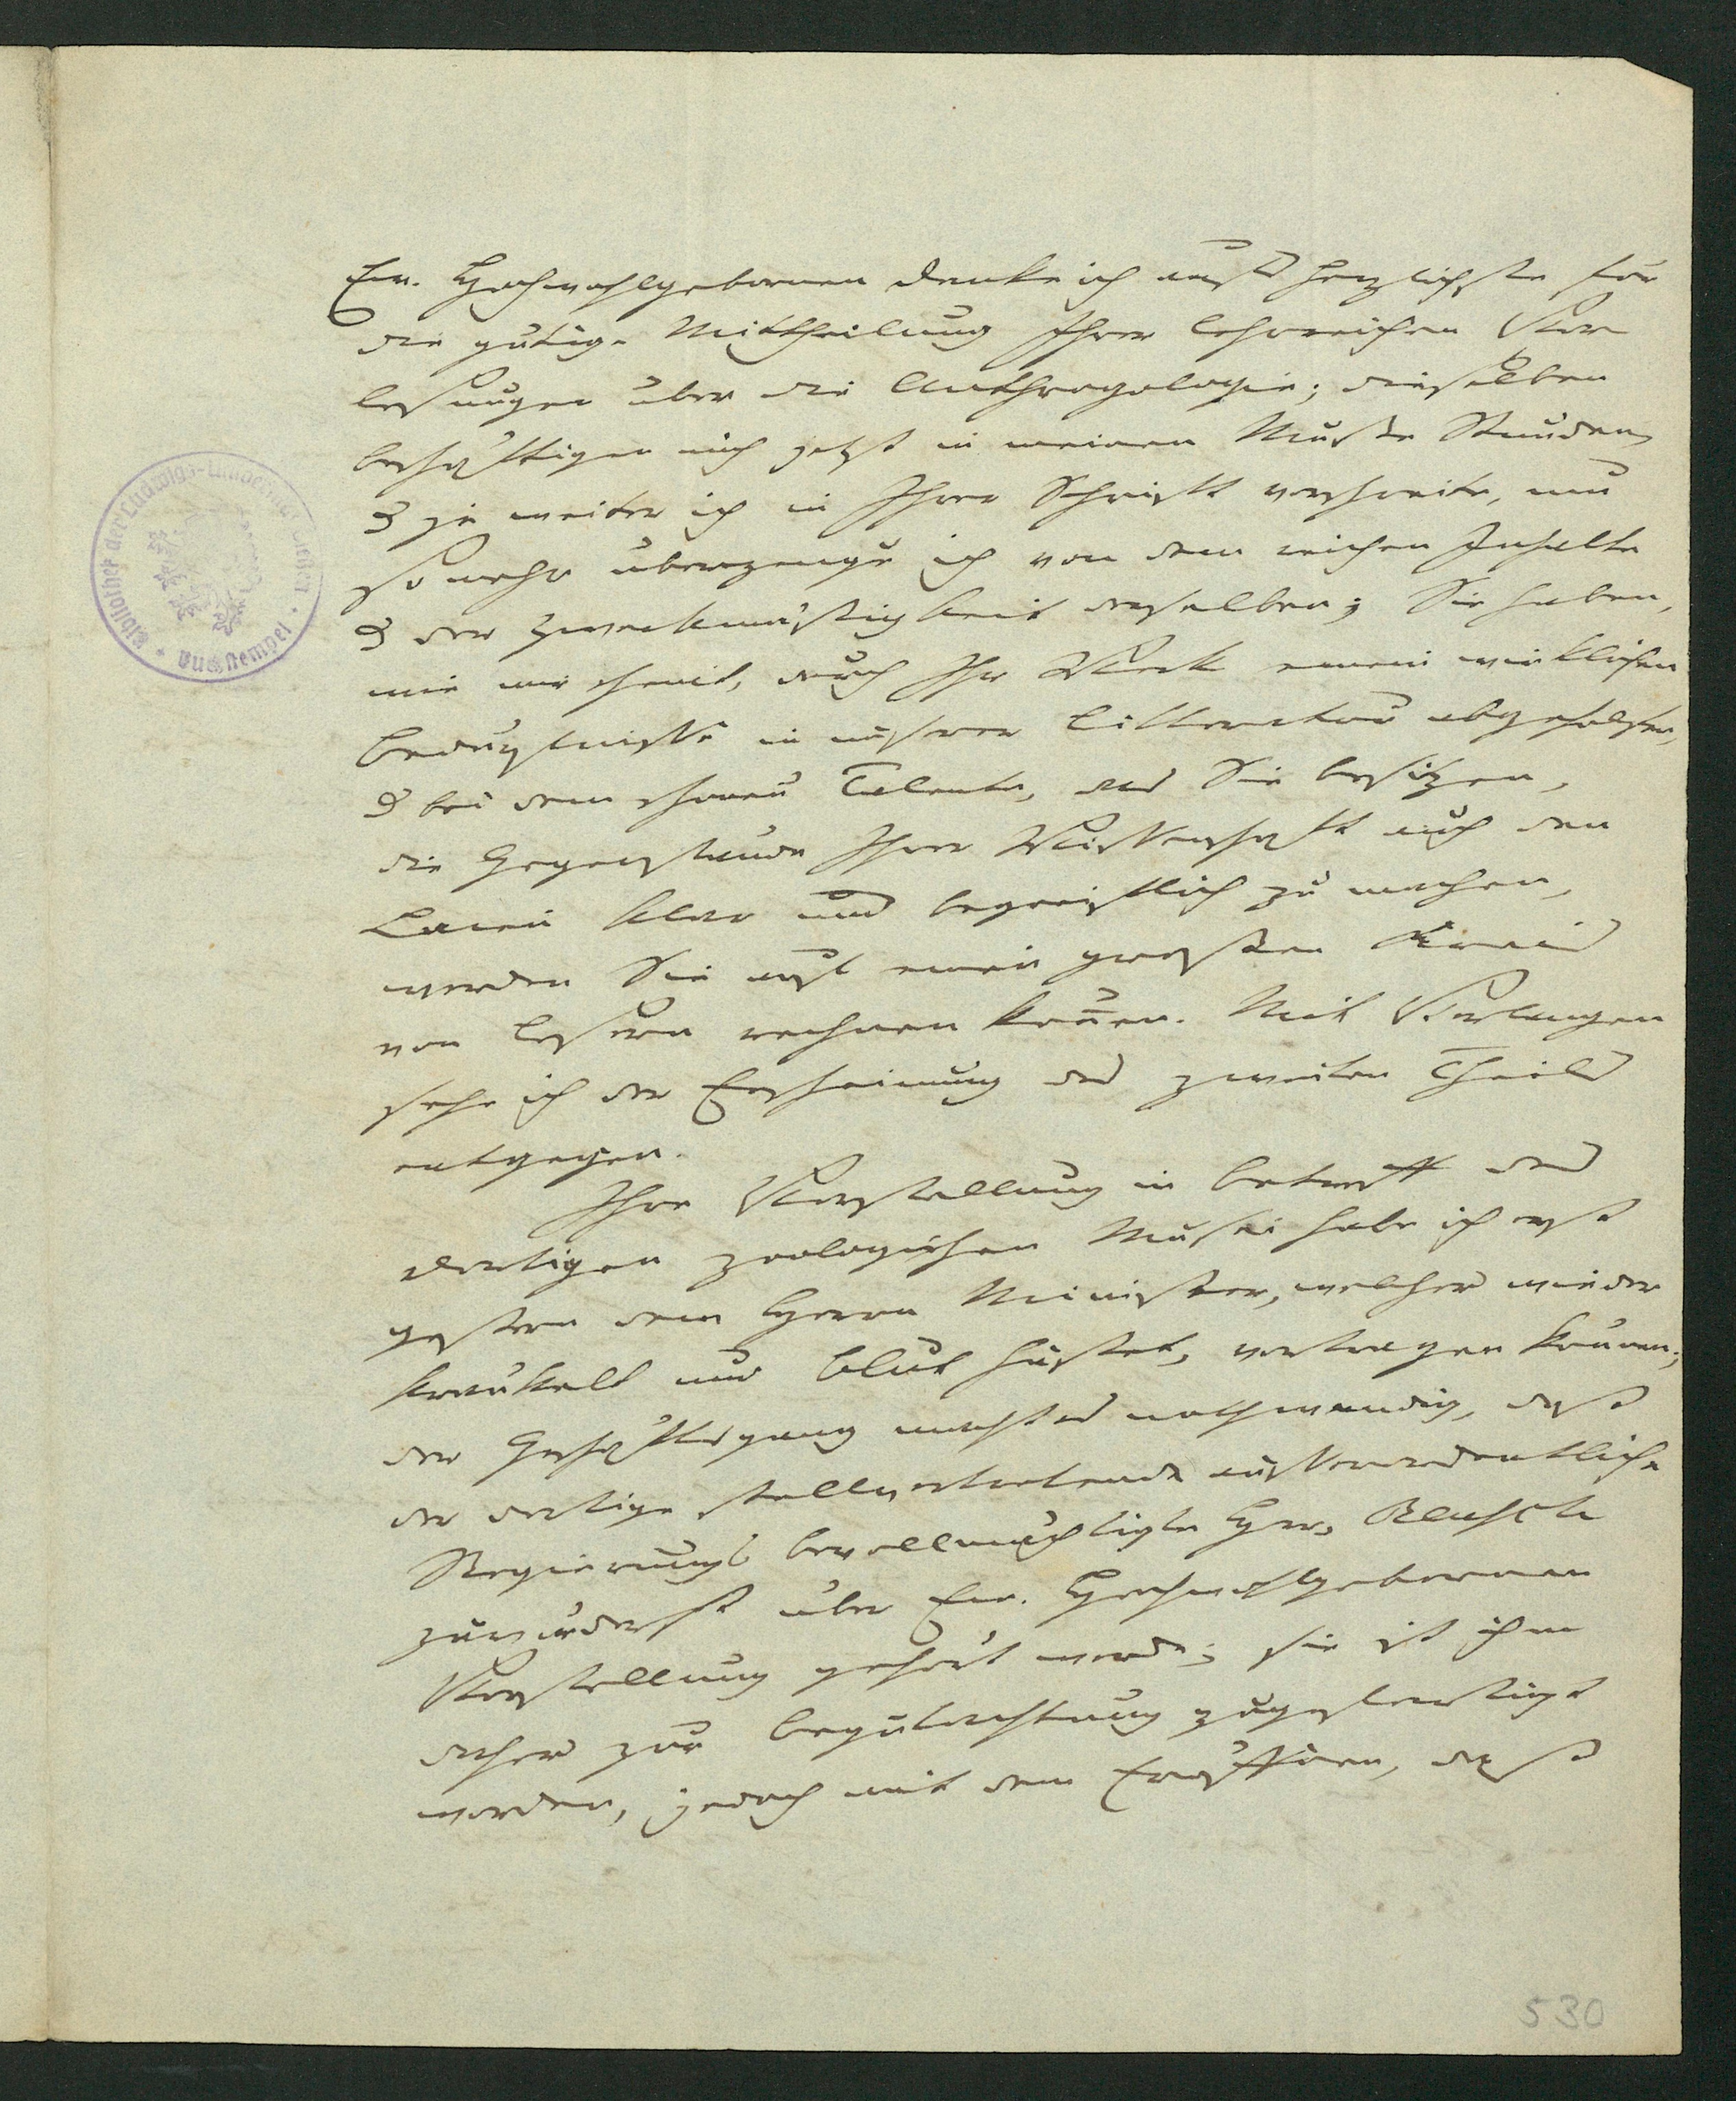 Ew. Hochwohlgebornen danke ich aufs herzlichste für
die gütige Mittheilung Ihrer lehrreichen Vor
lesungen über die Anthropologie; dieselben
beschäftigen mich jetzt in meinen Muße Stunden
& je weiter ich in Ihrer Schrift vorschreite, um
so mehr überzeuge ich von dem reichen Inhalte
& der Zweckmäßigkeit derselben; Sie haben,
wie mir scheint, durch Ihr Werk einem wirklichen
Bedürfnisse in unserer Litteratur abgeholfen,
& bei dem schönen Talente, das Sie besitzen,
die Gegenstände Ihrer Wissenschaft auch den
Laien klar und begreiflich zu machen,
werden Sie auf einen großen Kreis
von Lesern rechnen können. Mit Verlangen
sehe ich der Erscheinung des zweiten Theils
entgegen.
Ihre Vorstellung in betreff des
dortigen zoologischen Musei habe ich erst
gestern dem Herrn Minister, welcher wieder
kränkelt und Blut hustet, vortragen können;
der Geschäftsgang macht es nothwendig, daß
der dortige stellvertretende außerordentliche
Regierungs bevollmächtigte Herr
zuvörderst über Ew. Hochwohlgebornen
Vorstellung gehört werde; sie ist ihm
daher zur Begutachtung zugefertigt
worden, jedoch mit dem Eröffnen, daß
Bibliothek der Ludwigs-Universität Giessen * Buchstempel *
530